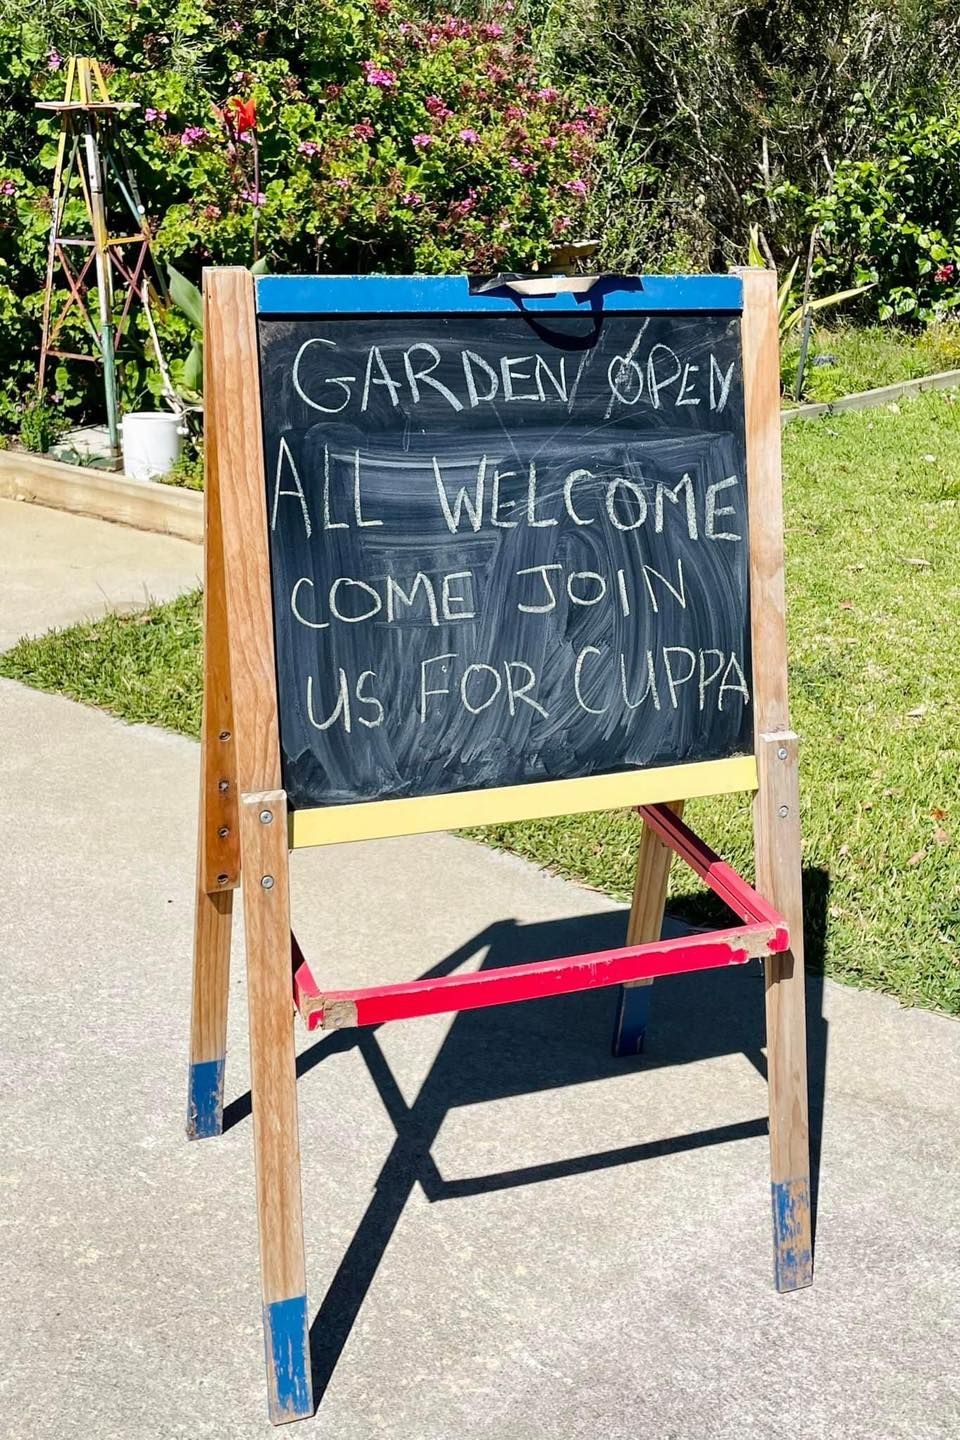 GARDEN OPEN
ALL WELCOME
COME JOIN
US FOR CUPPA